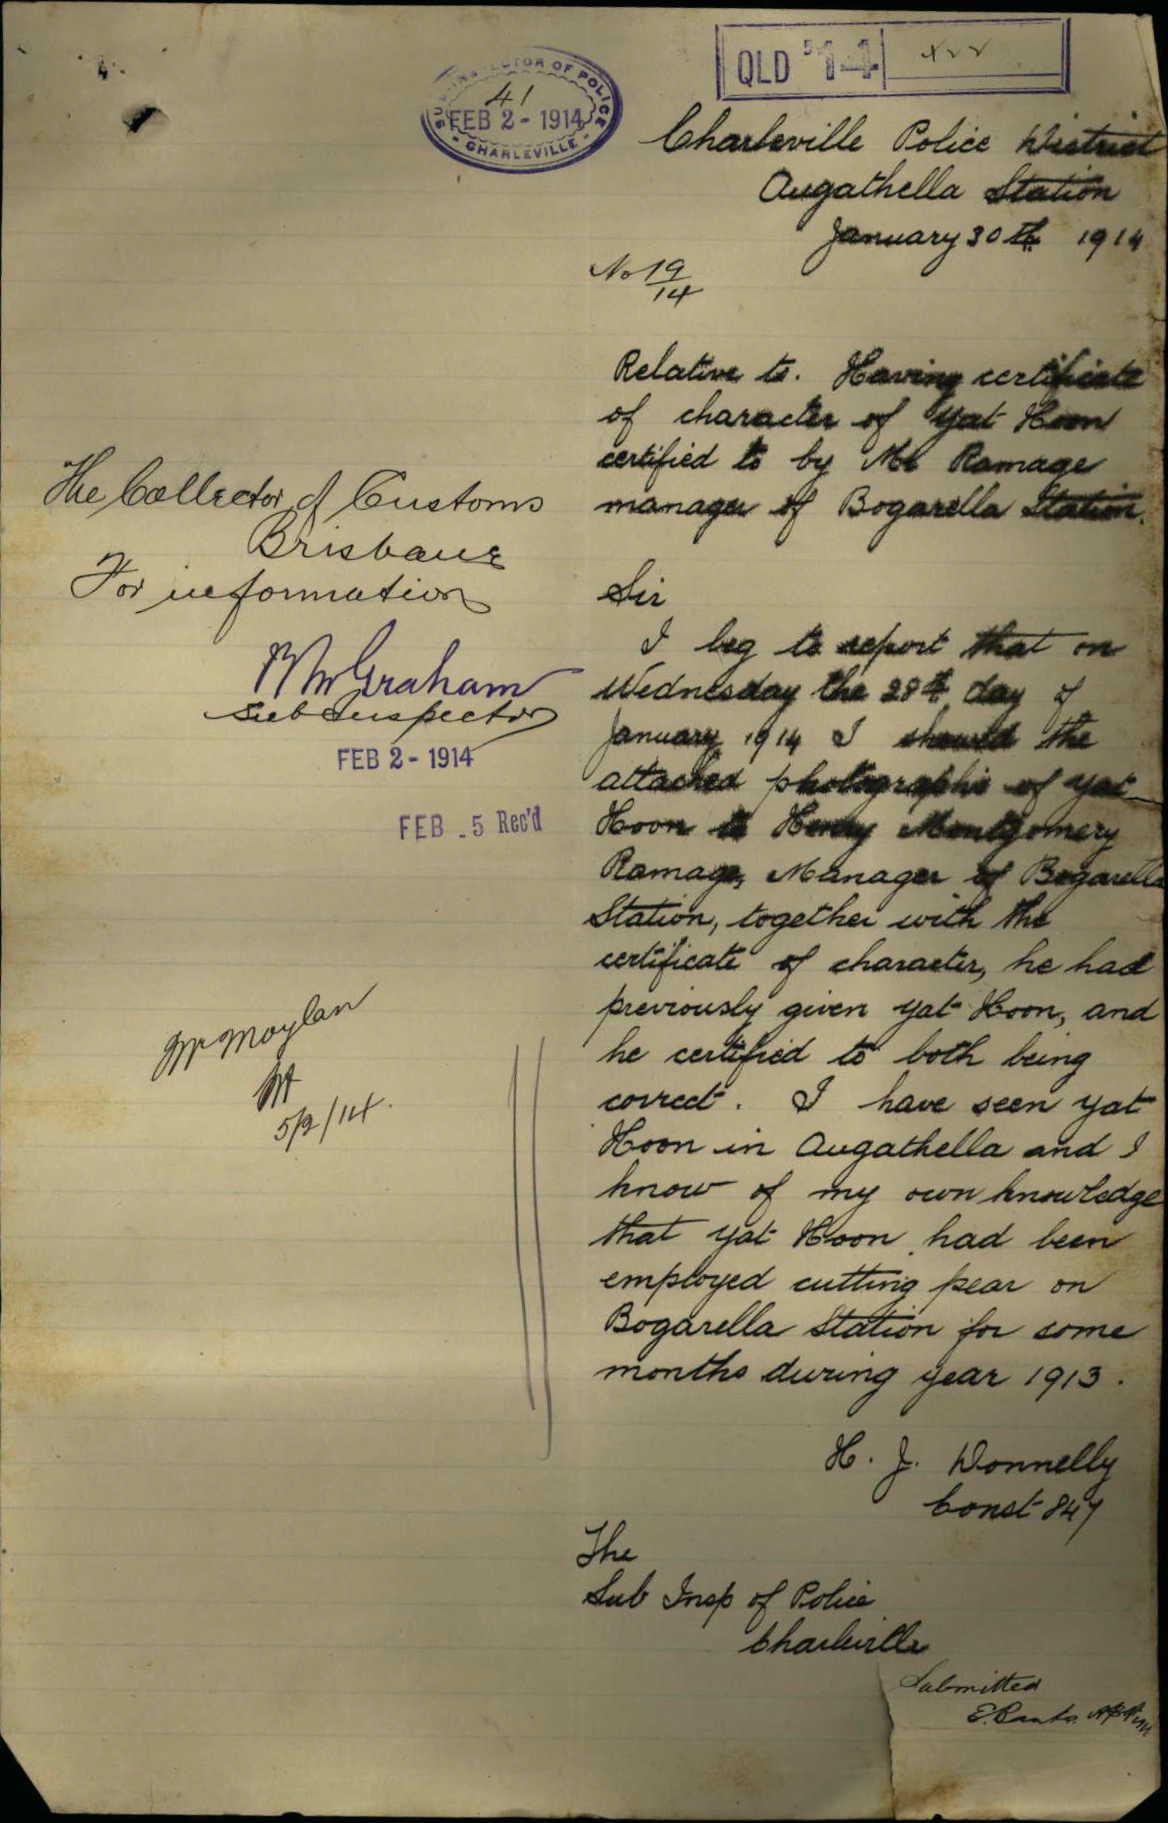 SUB-INSPECTOR OF POLICE
41
FEB 2 - 1914
CHARLEVILLE
QLD 14
Charleville Police District
Augathella Station
January 30th 1914
No 19/14
Relative to. Having certificate
of character of Yat Hoon
certified to by Mr Ramage
manager of Bogarella Station.
Sir
I beg to report that on
Wednesday the 28th day of
January 1914 I showed the
attached photographs of Yat
Hoon to Henry Montgomery
Ramage, Manager of Bogarella
Station, together with the
certificate of character, he had
previously given Yat Hoon, and
he certified to both being
correct. I have seen Yat
Hoon in Augathella and I
know of my own knowledge
that Yat Hoon had been
employed cutting pear on
Bogarella Station for some
months during year 1913.
H. J. Donnelly
Const 847
The
Sub Insp of Police
Charleville
Submitted
E. Banks
The Collector of Customs
Brisbane
For information
Graham
Sub Inspector
FEB 2 - 1914
FEB . 5 Rec'd
Mr Moylan
5/2/14.